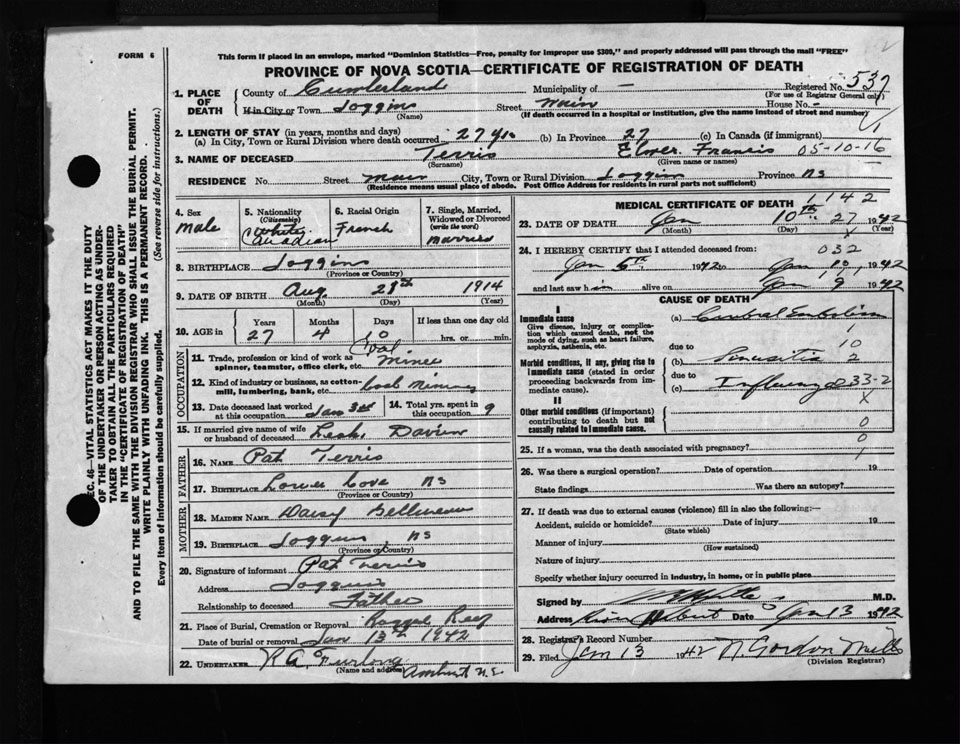 FORM 6
This form if placed in an envelope, marked "Dominion Statistics—Free, penalty for improper use $300," and properly addressed will pass through the mail "FREE"
PROVINCE OF NOVA SCOTIA—CERTIFICATE OF REGISTRATION OF DEATH
SEC. 46—VITAL STATISTICS ACT MAKES IT THE DUTY
OF THE UNDERTAKER OR PERSON ACTING AS UNDER-
TAKER TO OBTAIN ALL THE PARTICULARS REQUIRED
IN THE "CERTIFICATE OF REGISTRATION OF DEATH"
AND TO FILE THE SAME WITH THE DIVISION REGISTRAR WHO SHALL ISSUE THE BURIAL PERMIT.
WRITE PLAINLY WITH UNFADING INK. THIS IS A PERMANENT RECORD.
Every item of information should be carefully supplied. (See reverse side for instructions.)
1. PLACE OF DEATH County of Cumberland Municipality of — Registered No. 537
(For use of Registrar General only)
If in City or Town Joggins Street Main House No. -
(Name) (If death occurred in a hospital or institution, give the name instead of street and number)
2. LENGTH OF STAY (in years, months and days)
(a) In City, Town or Rural Division where death occurred 27 yrs (b) In Province 27 (c) In Canada (if immigrant)
3. NAME OF DECEASED Terris Elmer Francis 05-10-16
(Surname) (Given name or names)
RESIDENCE No. Street Main City, Town or Rural Division Joggins Province NS
(Residence means usual place of abode. Post Office Address for residents in rural parts not sufficient)
4. Sex Male
5. Nationality (Citizenship) White Canadian
6. Racial Origin French
7. Single, Married, Widowed or Divorced (write the word) Married
8. BIRTHPLACE Joggins
(Province or Country)
9. DATE OF BIRTH Aug 28th 1914
(Month) (Day) (Year)
10. AGE in Years 27 Months 4 Days 10 If less than one day old hrs. or min.
OCCUPATION
11. Trade, profession or kind of work as spinner, teamster, office clerk, etc. Coal Miner
12. Kind of industry or business, as cotton-mill, lumbering, bank, etc. Coal Mining
13. Date deceased last worked at this occupation Jan 3rd
14. Total yrs. spent in this occupation 9
15. If married give name of wife or husband of deceased
FATHER
16. NAME Pat Terris
17. BIRTHPLACE Lower Cove NS
(Province or Country)
MOTHER
18. MAIDEN NAME Daisy Belliveau
19. BIRTHPLACE Joggins NS
(Province or Country)
20. Signature of informant Pat Terris
Address Joggins
Relationship to deceased Father
21. Place of Burial, Cremation or Removal Ragged Reef
Date of burial or removal Jan 13th 1942
22. UNDERTAKER R A Furlong Amherst N.S.
(Name and address)
MEDICAL CERTIFICATE OF DEATH
142
23. DATE OF DEATH Jan 10th 27 1942
(Month) (Day) (Year)
24. I HEREBY CERTIFY that I attended deceased from: 032
Jan 5th 1942 to Jan 10, 1942
and last saw him alive on Jan 9 1942
CAUSE OF DEATH
I
Immediate cause
Give disease, injury or complication which caused death, not the mode of dying, such as heart failure, asphyxia, asthenia, etc.
(a) Cerebral Embolism
due to 10
Morbid conditions, if any, giving rise to immediate cause (stated in order proceeding backwards from immediate cause).
(b) 2
due to
(c) Influenza 033-2
II
Other morbid conditions (if important) contributing to death but not causally related to immediate cause.
25. If a woman, was the death associated with pregnancy?
26. Was there a surgical operation? Date of operation 19
State findings Was there an autopsy?
27. If death was due to external causes (violence) fill in also the following:—
Accident, suicide or homicide? Date of injury 19
(State which)
Manner of injury
(How sustained)
Nature of injury
Specify whether injury occurred in industry, in home, or in public place
Signed by M.D.
Address River Hebert Date Jan 13 1942
28. Registrar's Record Number
29. Filed Jan 13 1942 N Gordon Mills
(Division Registrar)